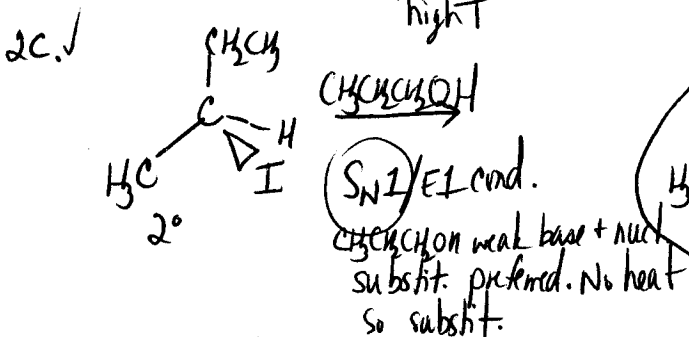 high T
2C. ✓
CH₂CH₃
C
H
I
H₃C
2°
CH₃CH₂CH₂OH
SN1/E1 cond.
CH₃CH₂CH₂OH weak base + nucl
substit. preferred. No heat
so substit.
H₃